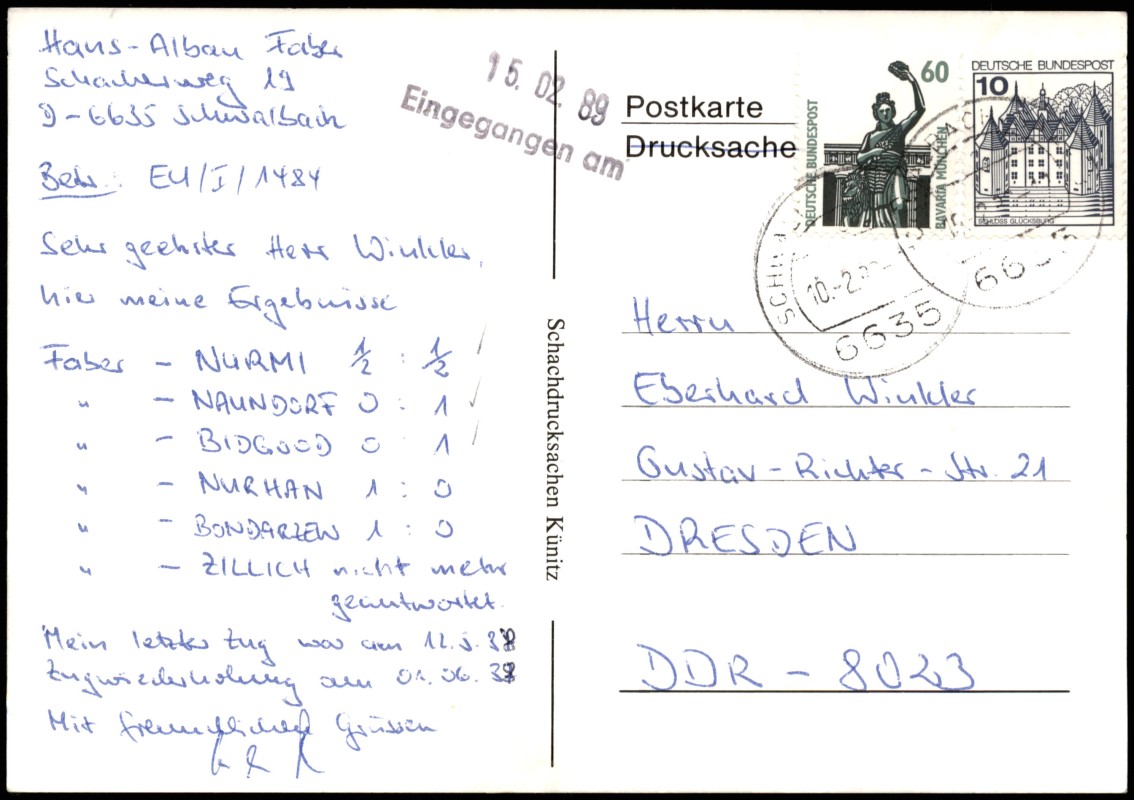 Hans-Alban Faber
Schacherweg 19
D-6635 Schwalbach
Betr. EU/I/1484
Sehr geehrter Herr Winkler,
hier meine Ergebnisse
Faber - NURMI ½ : ½
" - NAUNDORF 0 : 1
" - BIDGOOD 0 1
" - NURHAN 1 : 0
" - BONDARZEW 1 : 0
" - ZILLICH nicht mehr
geantwortet.
Mein letzter Zug war am 12.5.88
Zugwiederholung am 01.06.88
Mit freundlichen Grüssen
15. 02. 89
Eingegangen am
Schachdrucksachen Künitz
Postkarte
Drucksache
DEUTSCHE BUNDESPOST
60
BAVARIA MÜNCHEN
DEUTSCHE BUNDESPOST
10
SCHLOSS GLÜCKSBURG
10.-2.
6635
Herrn
Eberhard Winkler
Gustav-Richter-Str. 21
DRESDEN
DDR - 8023